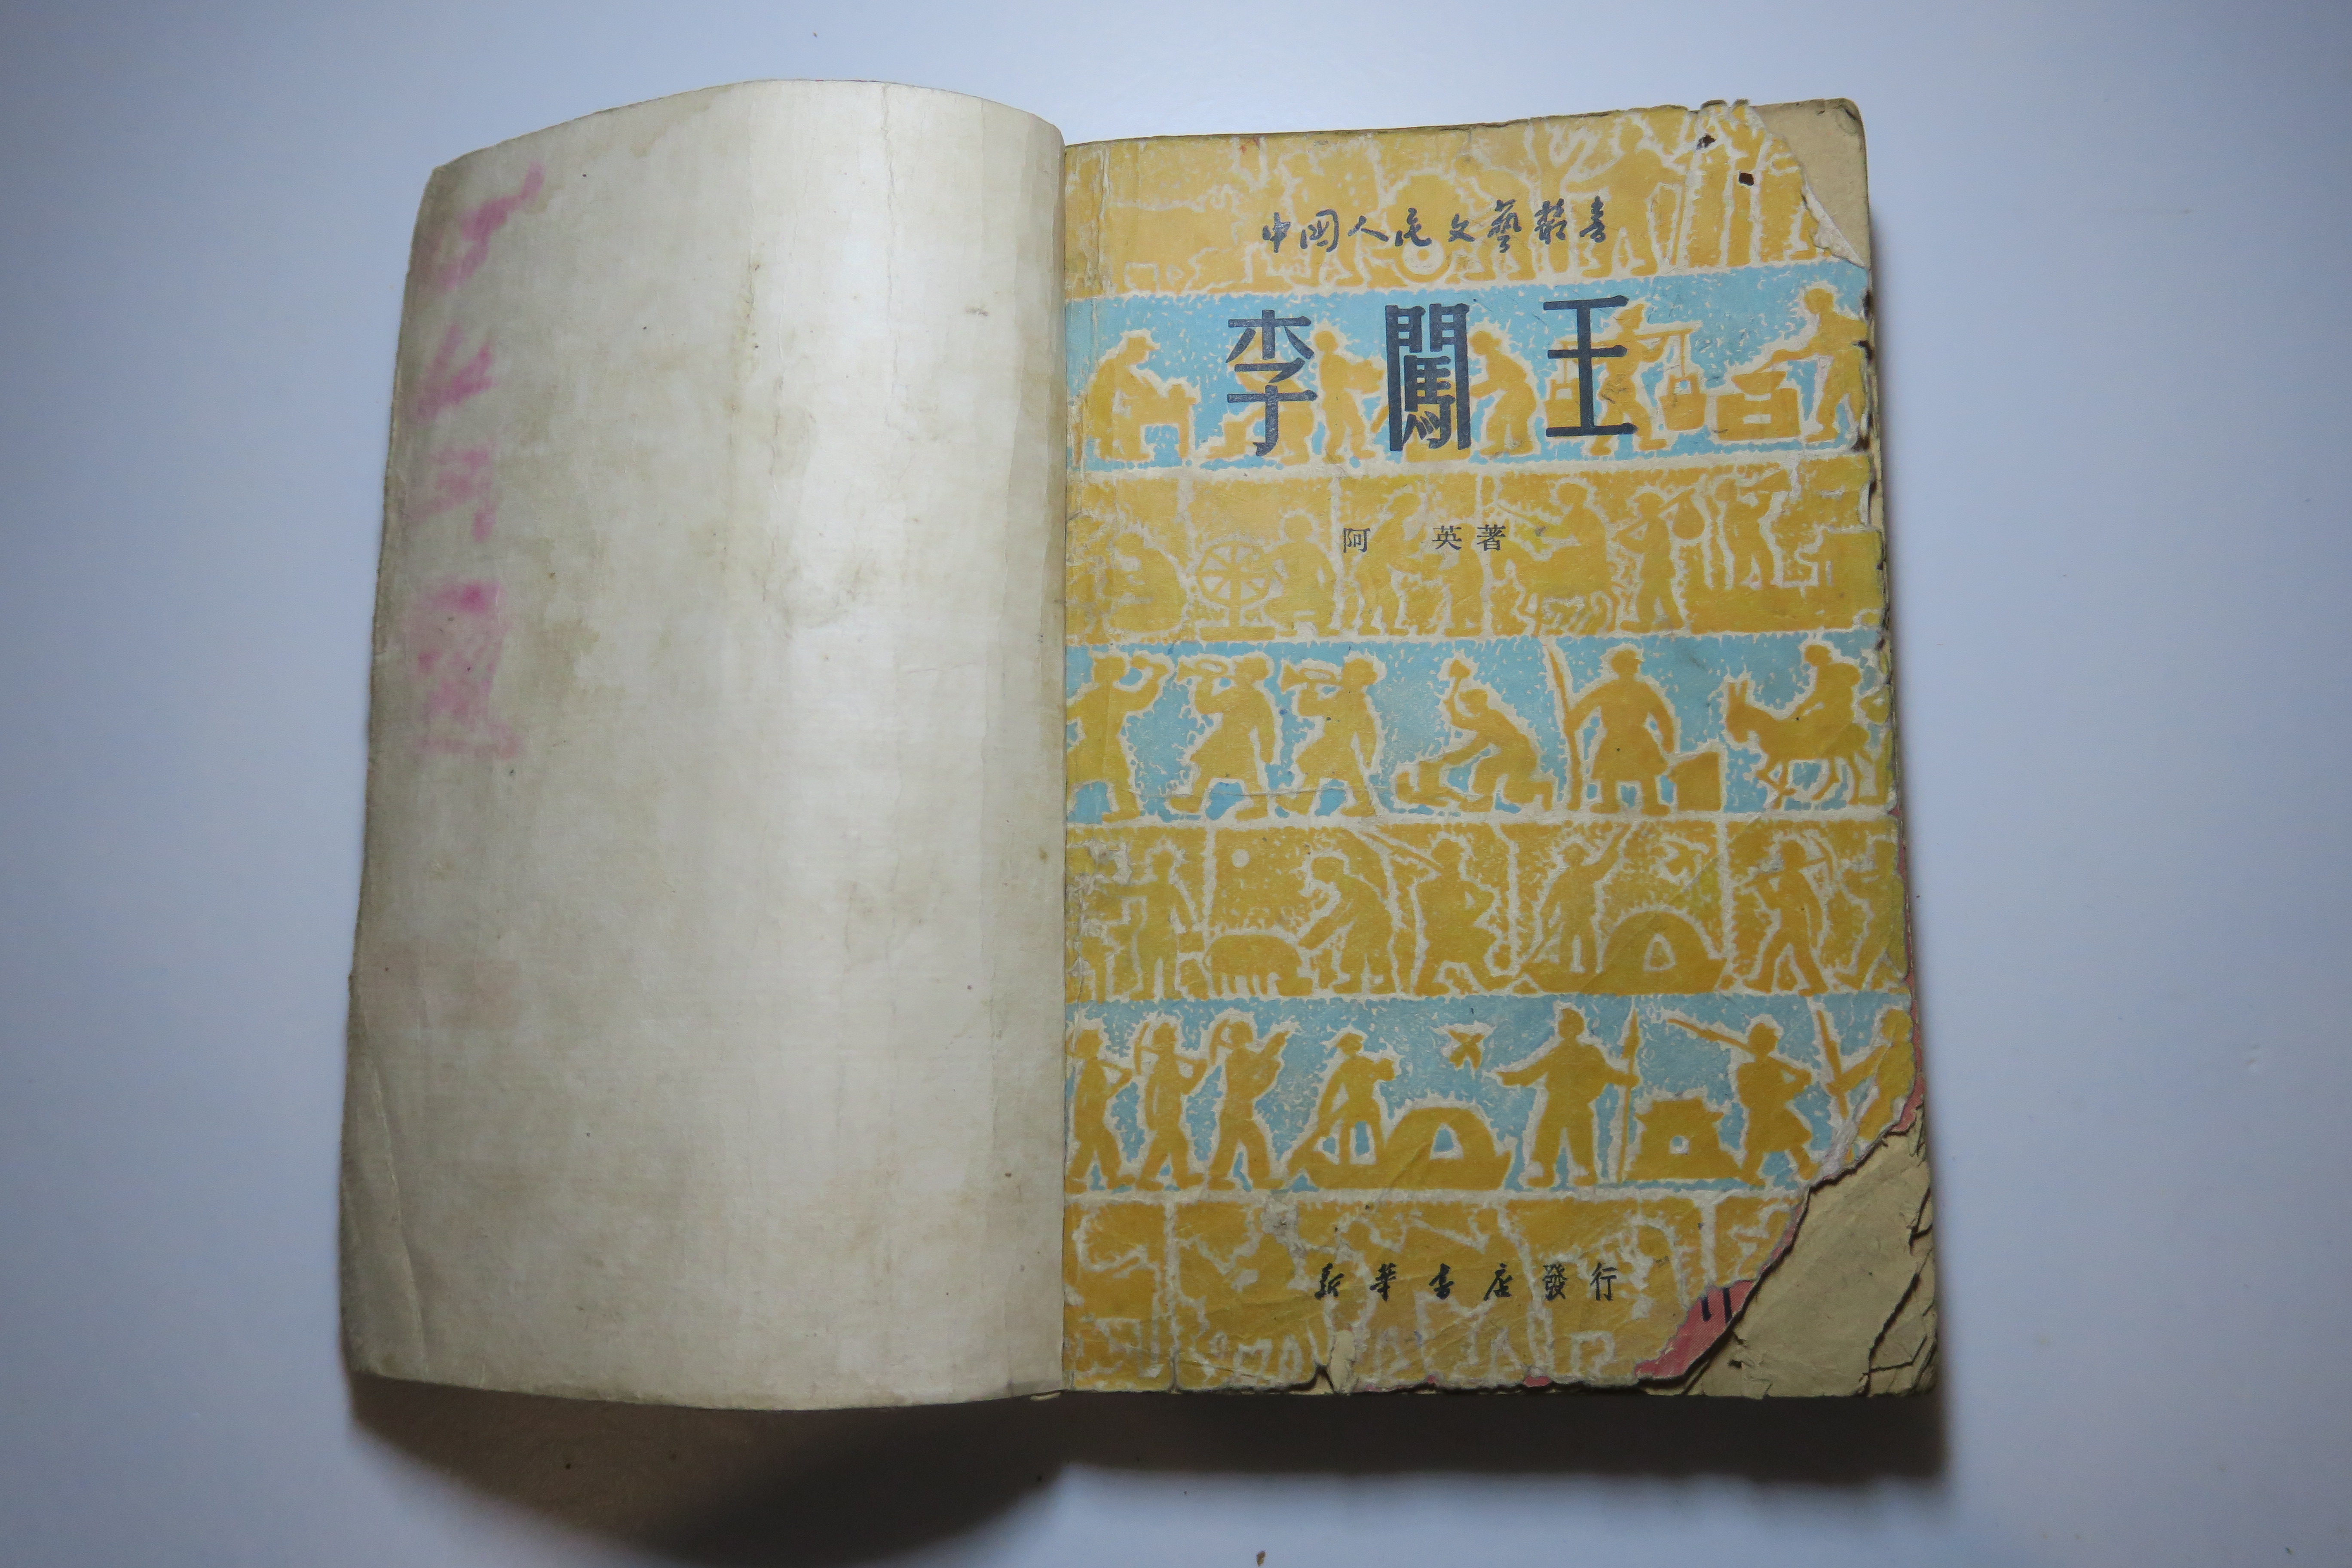 中國人民文藝叢書
李闖王
阿 英著
新華書店發行